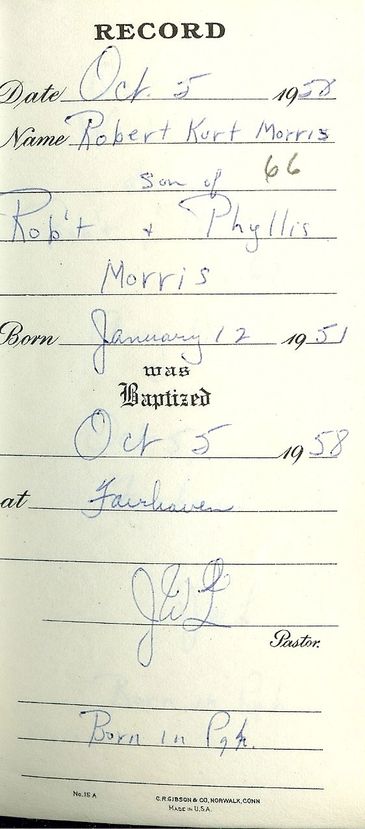 RECORD
Date Oct. 5 1958
Name Robert Kurt Morris
son of 66
Rob't + Phyllis
Morris
Born January 12 1951
was
Baptized
Oct 5 1958
at Fairhaven
JWL
Pastor.
Born in Pgh.
No. 15 A C.R. GIBSON & CO, NORWALK, CONN
MADE IN U.S.A.